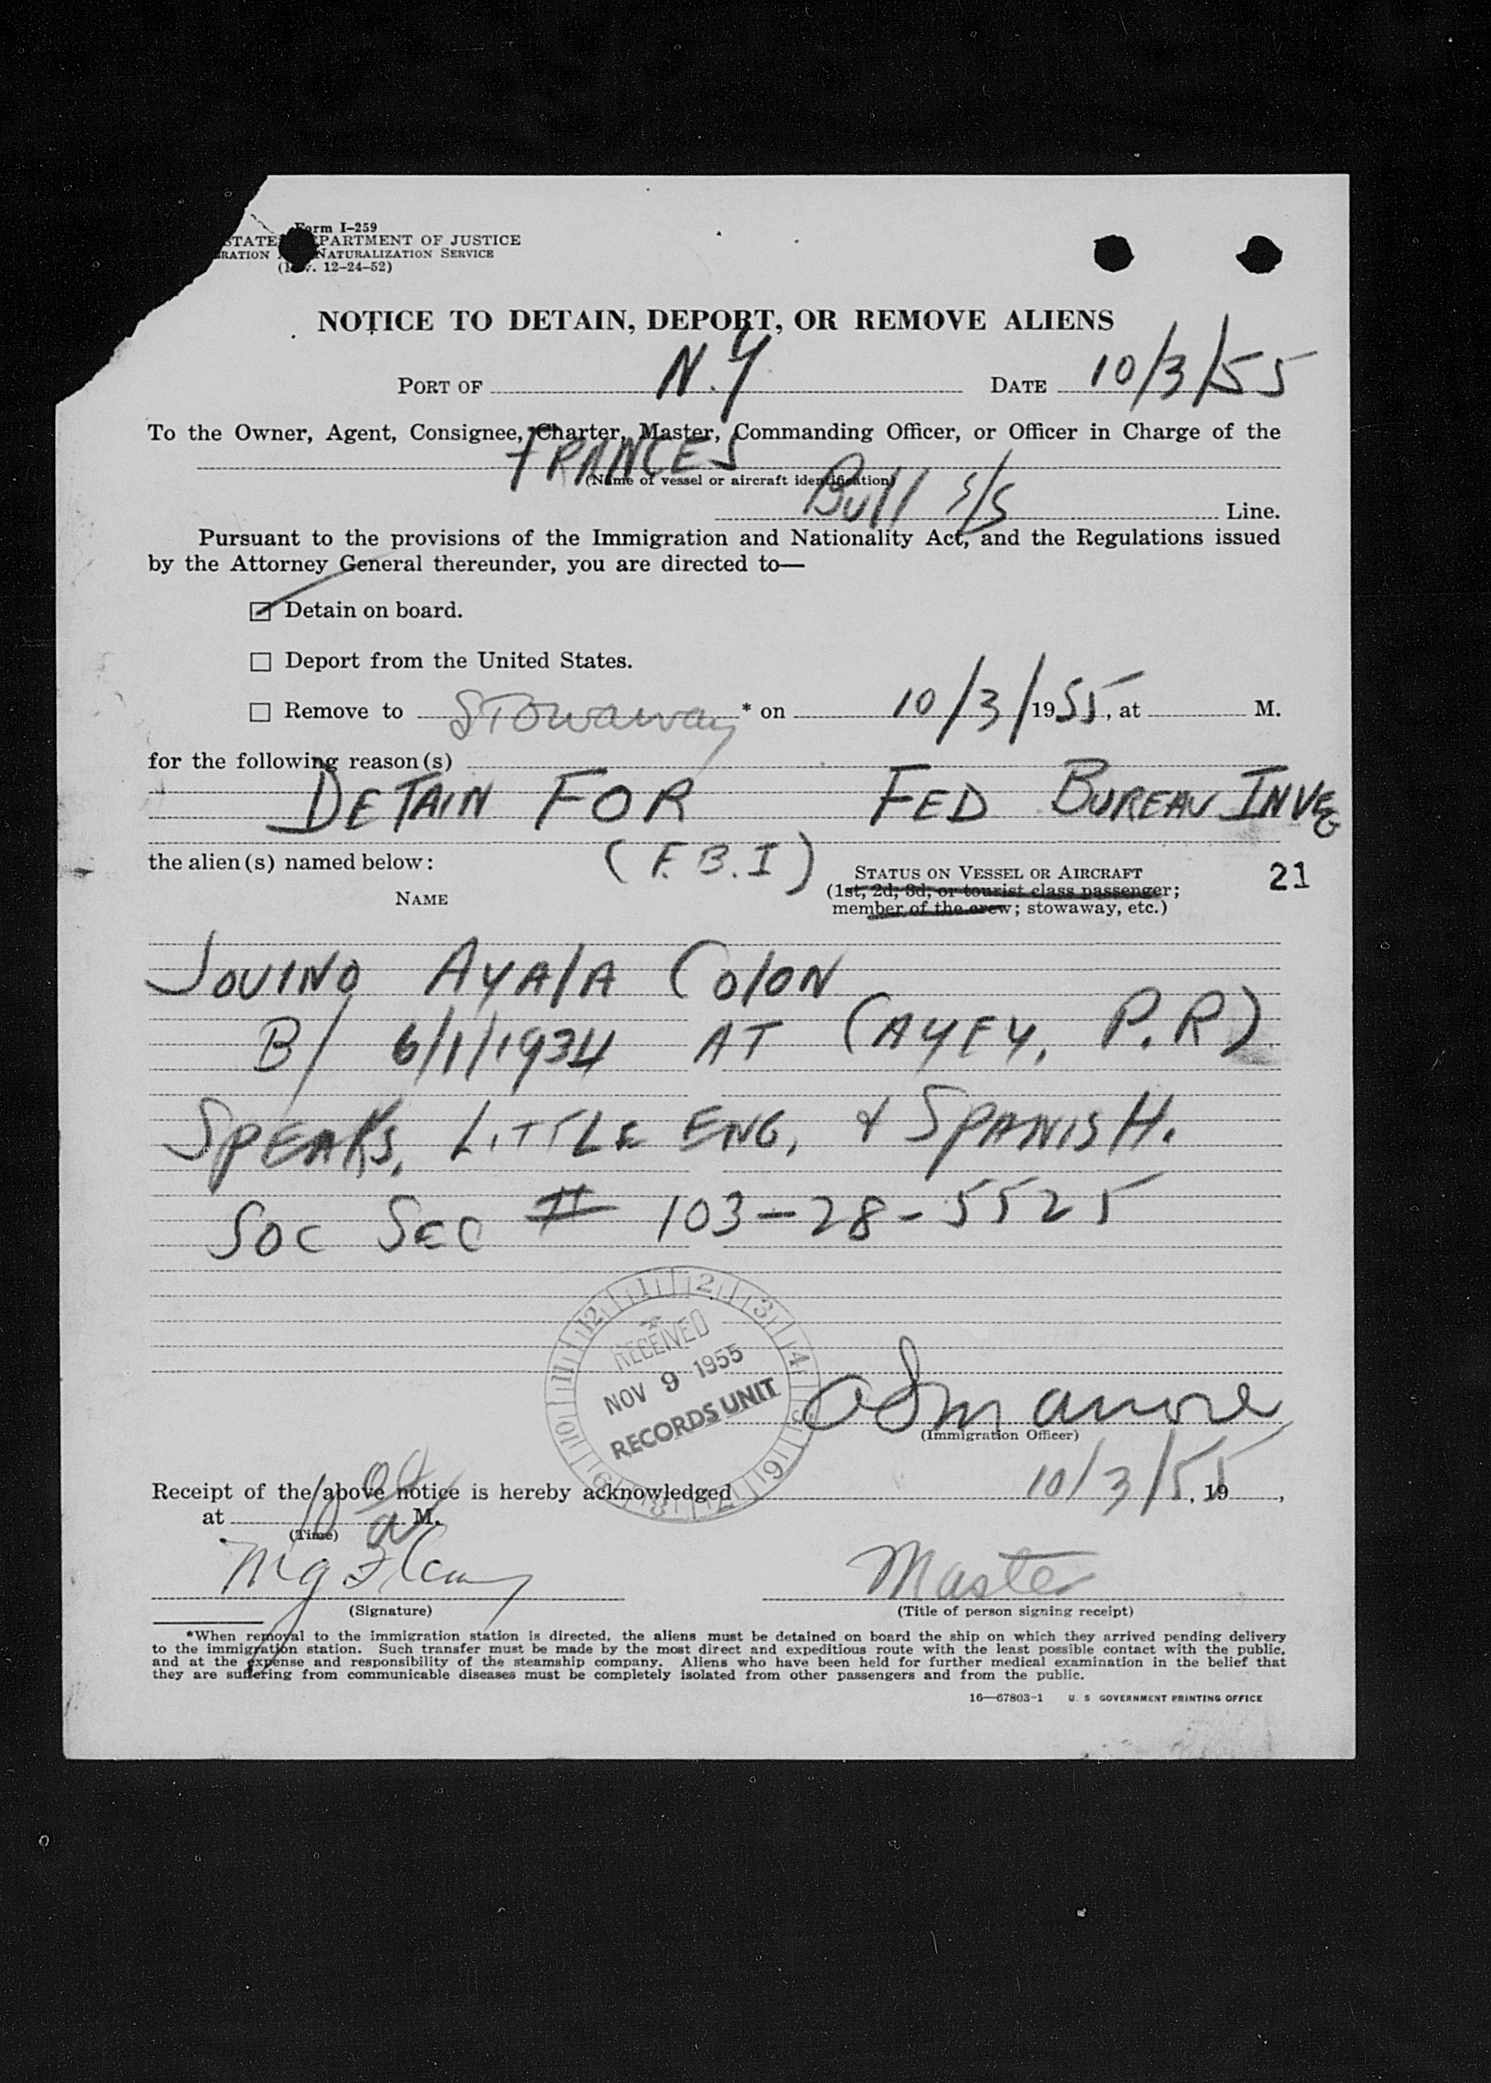 Form I-259
STATE DEPARTMENT OF JUSTICE
NATURALIZATION SERVICE
12-24-52)
NOTICE TO DETAIN, DEPORT, OR REMOVE ALIENS
PORT OF N.Y DATE 10/3/55
To the Owner, Agent, Consignee, Charter, Master, Commanding Officer, or Officer in Charge of the
FRANCES
(Name of vessel or aircraft identification)
Bull S/S Line.
Pursuant to the provisions of the Immigration and Nationality Act, and the Regulations issued
by the Attorney General thereunder, you are directed to—
Detain on board.
Deport from the United States.
Remove to Stowaway * on 10/3/1955, at M.
for the following reason(s)
DETAIN FOR FED BUREAU INVEG
the alien(s) named below: (F.B.I)
STATUS ON VESSEL OR AIRCRAFT
21
NAME
(1st, 2d, 3d, or tourist class passenger;
member of the crew; stowaway, etc.)
JOVINO AYALA COLON
B/ 6/1/1934 AT (AYEY, P.R)
SPEAKS, LITTLE ENG, & SPANISH.
SOC SEC # 103-28-5525
1 2 3 4 5 6 7 8 9 10 11 12
RECEIVED
NOV 9 1955
RECORDS UNIT
(Immigration Officer)
Receipt of the above notice is hereby acknowledged 10/3/55, 19 ,
at M.
(Time)
Master
(Signature) (Title of person signing receipt)
*When removal to the immigration station is directed, the aliens must be detained on board the ship on which they arrived pending delivery
to the immigration station. Such transfer must be made by the most direct and expeditious route with the least possible contact with the public,
and at the expense and responsibility of the steamship company. Aliens who have been held for further medical examination in the belief that
they are suffering from communicable diseases must be completely isolated from other passengers and from the public.
16—67803-1 U. S GOVERNMENT PRINTING OFFICE